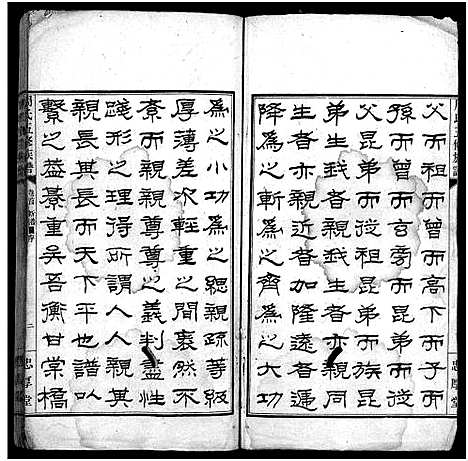 父而祖而曾而高下而子而
孫而曾而玄旁而昆弟而從
父昆弟而從祖昆弟而族昆
弟生我者親我生者亦親同
生者亦親近者加隆遠者遞
降爲之斬爲之齊爲之大功
爲之小功爲之緦親疏等級
厚薄差次輕重之間袤然不
紊而親親尊尊之義判盡性
踐形之理得謂人人親其
親長其長而天下平也譜以
繫之益綦重矣吾衡甘棠橋
周氏五修族譜
卷首
二
忠厚堂
忠厚堂